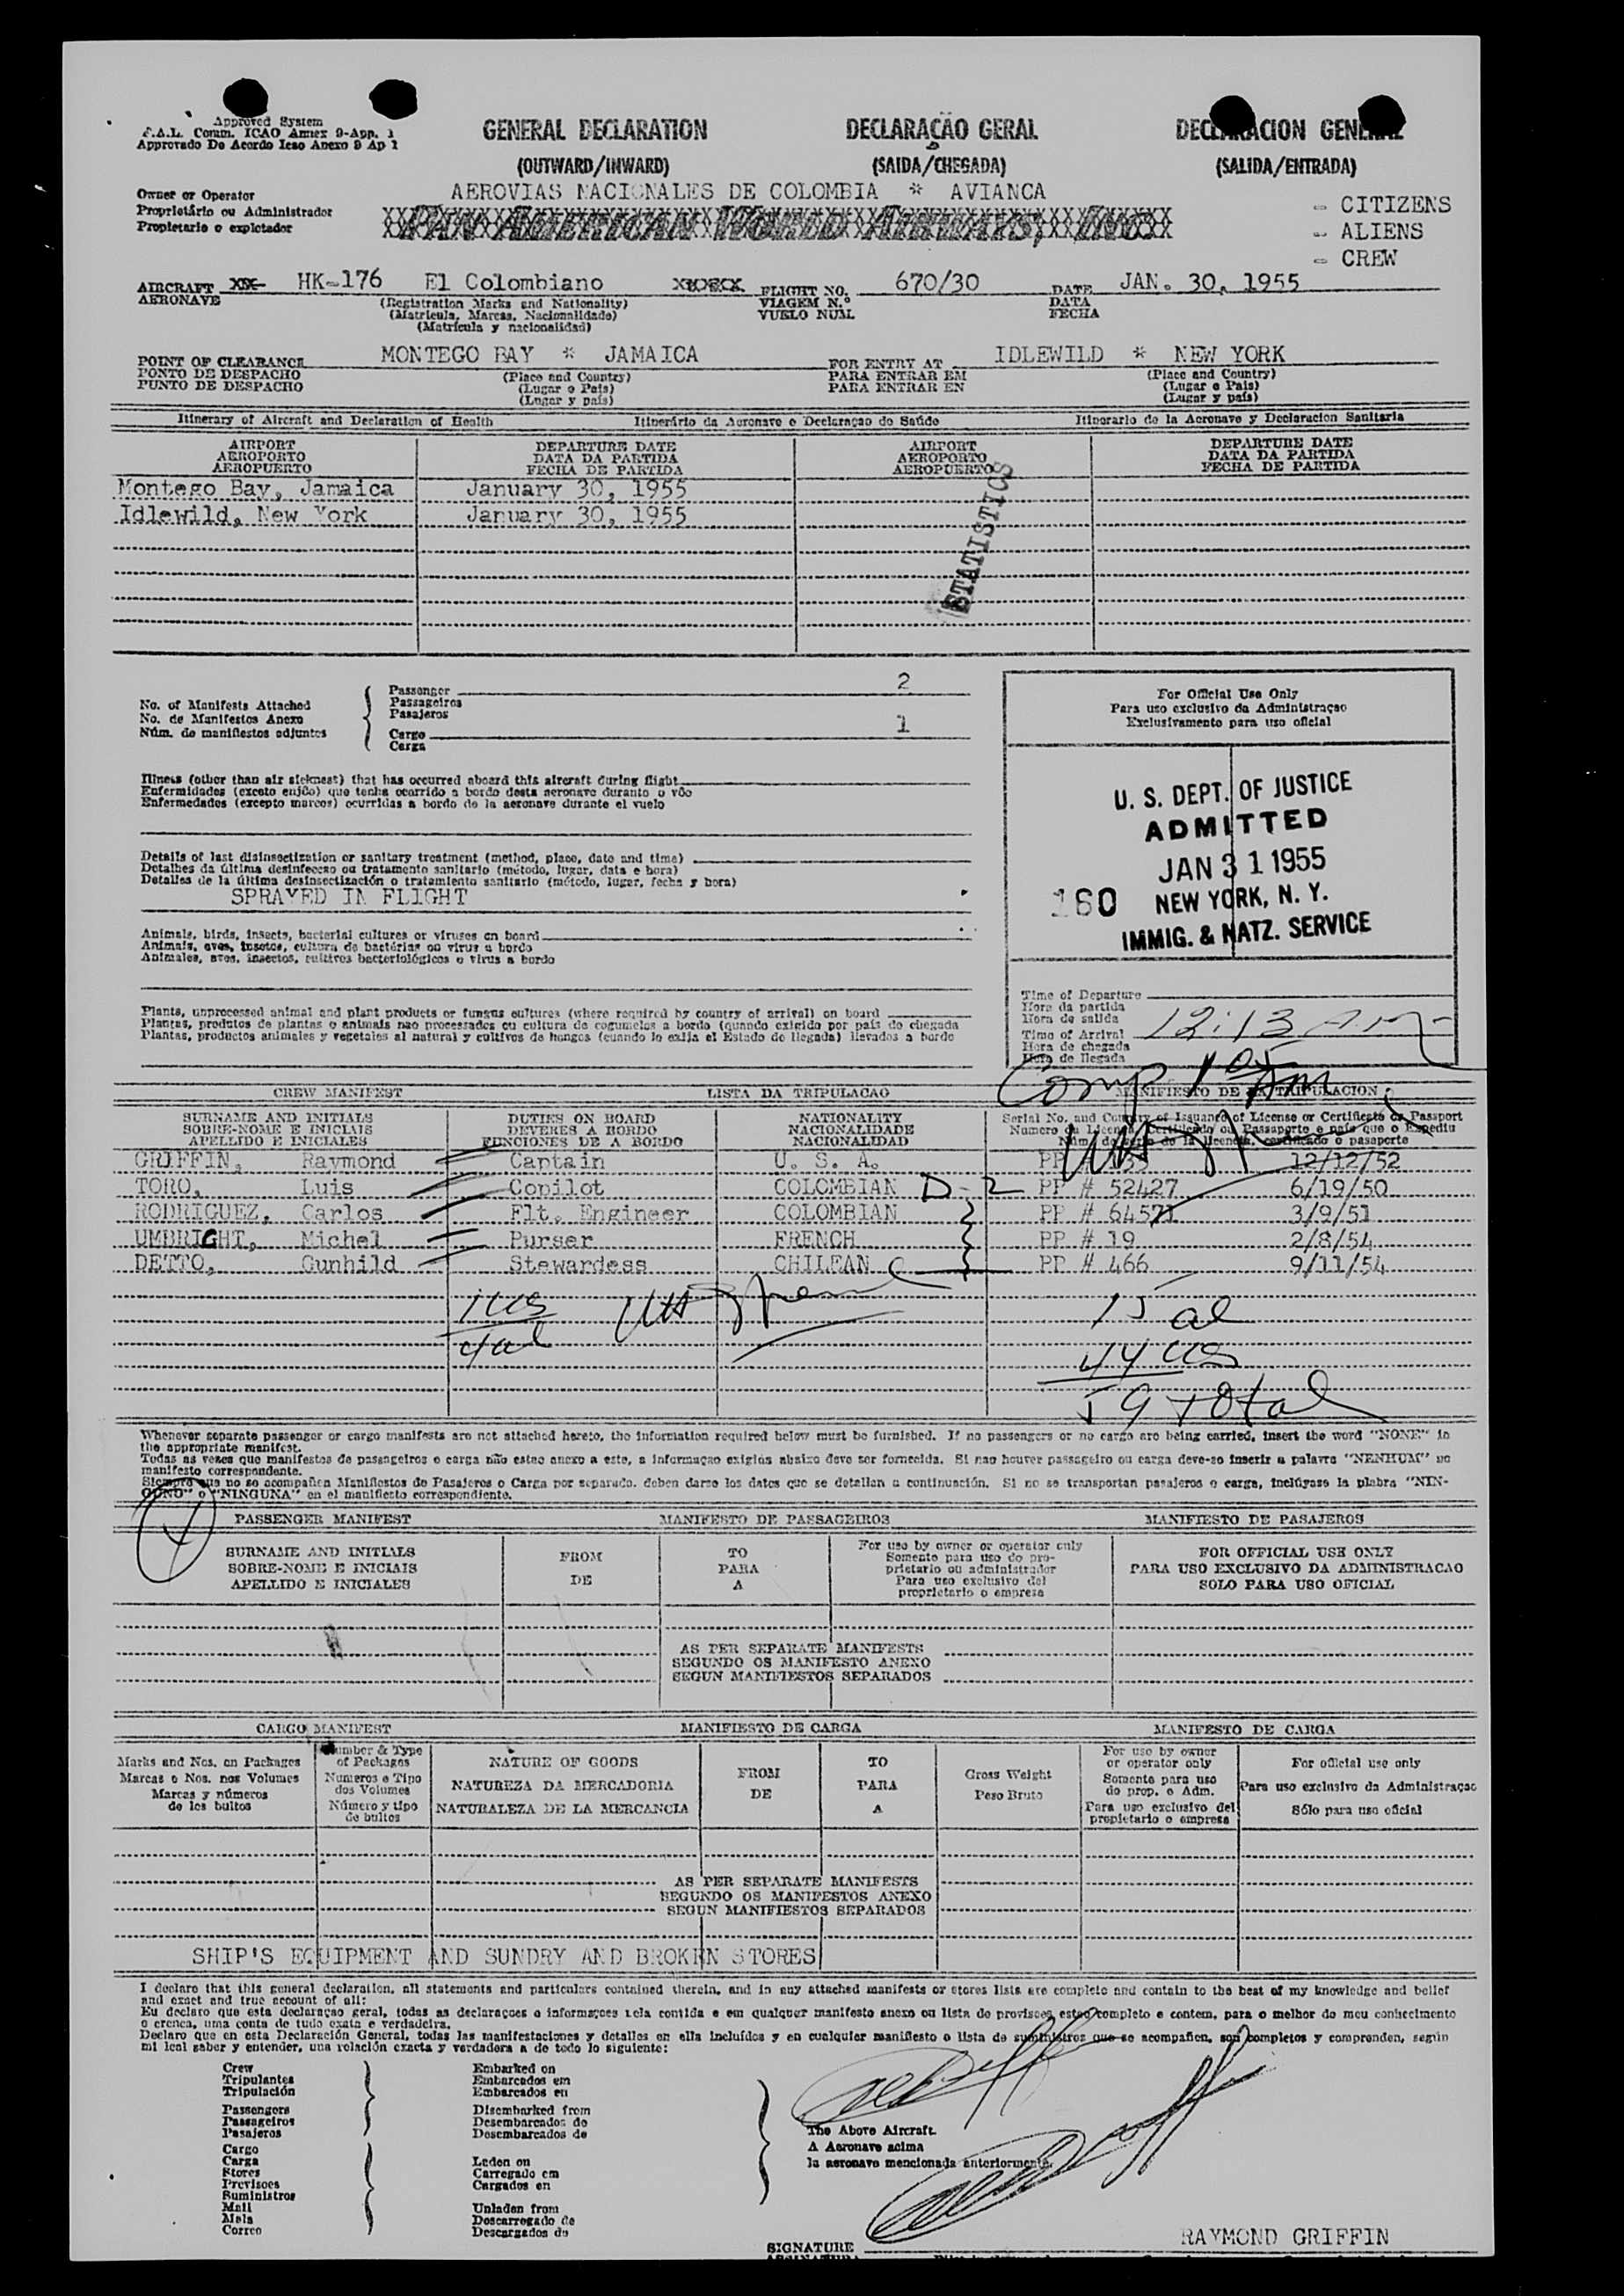 Approved System
F.A.L. Comm. ICAO Annex 9-App. 1
Approvado De Acordo Icao Anexo 9 Ap 1
GENERAL DECLARATION DECLARAÇÃO GERAL
(OUTWARD/INWARD) (SAIDA/CHEGADA) (SALIDA/ENTRADA)
Owner or Operator AEROVIAS NACIONALES DE COLOMBIA * AVIANCA
Proprietário ou Administrador PAN AMERICAN WORLD AIRWAYS, INC.
Propietario o explotador
- CITIZENS
- ALIENS
- CREW
AIRCRAFT HK-176 El Colombiano FLIGHT NO. 670/30 DATE JAN. 30, 1955
AERONAVE (Registration Marks and Nationality) VIAGEM N.º DATA
(Matricula, Marcas, Nacionalidade) VUELO NUM. FECHA
(Matrícula y nacionalidad)
POINT OF CLEARANCE MONTEGO BAY * JAMAICA FOR ENTRY AT IDLEWILD * NEW YORK
PONTO DE DESPACHO (Place and Country) PARA ENTRAR EM (Place and Country)
PUNTO DE DESPACHO (Lugar e País) PARA ENTRAR EN (Lugar e País)
(Lugar y país) (Lugar y país)
Itinerary of Aircraft and Declaration of Health Itinerário da Aeronave e Declaraçao de Saúde Itinerario de la Aeronave y Declaracion Sanitaria
AIRPORT DEPARTURE DATE AIRPORT DEPARTURE DATE
AEROPORTO DATA DA PARTIDA AEROPORTO DATA DA PARTIDA
AEROPUERTO FECHA DE PARTIDA AEROPUERTO FECHA DE PARTIDA
Montego Bay, Jamaica January 30, 1955
Idlewild, New York January 30, 1955
STATISTICS
No. of Manifests Attached Passenger 2
No. de Manifestos Anexo Passageiros
Núm. de manifiestos adjuntos Pasajeros
Cargo 1
Carga
For Official Use Only
Para uso exclusivo da Administraçao
Exclusivamente para uso oficial
Illness (other than air sickness) that has occurred aboard this aircraft during flight
Enfermidades (exceto enjôo) que tenha ocorrido a bordo desta aeronave durante o vôo
Enfermedades (excepto mareos) ocurridas a bordo de la aeronave durante el vuelo
U. S. DEPT. OF JUSTICE
ADMITTED
JAN 31 1955
160 NEW YORK, N. Y.
IMMIG. & NATZ. SERVICE
Details of last disinsectization or sanitary treatment (method, place, date and time)
Detalhes da última desinfeccao ou tratamento sanitario (método, lugar, data e hora)
Detalles de la última desinsectización o tratamiento sanitario (método, lugar, fecha y hora)
SPRAYED IN FLIGHT
Animals, birds, insects, bacterial cultures or viruses on board
Animais, aves, insetos, cultura de bactérias ou virus a bordo
Animales, aves, insectos, cultivos bacteriológicos o virus a bordo
Plants, unprocessed animal and plant products or fungus cultures (where required by country of arrival) on board
Plantas, produtos de plantas o animais nao processados ou cultura de cogumelos a bordo (quando exigido por país de chegada
Plantas, productos animales y vegetales al natural y cultivos de hongos (cuando lo exija el Estado de llegada) llevados a bordo
Time of Departure
Hora da partida
Hora de salida
Time of Arrival 12:13 AM
Hora de chegada
Hora de llegada
Comp 1 05 Am
CREW MANIFEST LISTA DA TRIPULACAO MANIFIESTO DE LA TRIPULACION
SURNAME AND INITIALS DUTIES ON BOARD NATIONALITY Serial No. and Country of Issuance of License or Certificate or Passport
SOBRE-NOME E INICIAIS DEVERES A BORDO NACIONALIDADE Numero da Licença, Certificado ou Passaporte e país que o Expediu
APELLIDO E INICIALES FUNCIONES DE A BORDO NACIONALIDAD Núm. de serie de la licencia, certificado o pasaporte
GRIFFIN, Raymond Captain U. S. A. PP 12/12/52
TORO, Luis Copilot COLOMBIAN D-2 PP # 52427 6/19/50
RODRIGUEZ, Carlos Flt. Engineer COLOMBIAN PP # 64571 3/9/51
UMBRIGHT, Michel Purser FRENCH PP # 19 2/8/54
DETTO, Gunhild Stewardess CHILEAN PP # 466 9/11/54
1 US
4 al
15 al
44 US
59 total
Whenever separate passenger or cargo manifests are not attached hereto, the information required below must be furnished. If no passengers or no cargo are being carried, insert the word "NONE" in
the appropriate manifest.
Todas as vezes que manifestos de pasageiros e carga não estao anexo a este, a informaçao exigida abaixo deve ser fornecida. Si nao houver passageiro ou carga deve-se inserir a palavra "NENHUM" no
manifesto correspondente.
Siempre que no se acompañen Manifiestos de Pasajeros o Carga por separado, deben darse los datos que se detallan a continuación. Si no se transportan pasajeros o carga, inclúyase la plabra "NIN-
GUNO" o "NINGUNA" en el manifiesto correspondiente.
PASSENGER MANIFEST MANIFESTO DE PASSAGEIROS MANIFIESTO DE PASAJEROS
SURNAME AND INITIALS FROM TO For use by owner or operator only FOR OFFICIAL USE ONLY
SOBRE-NOME E INICIAIS DE PARA Somente para uso do pro- PARA USO EXCLUSIVO DA ADMINISTRACAO
APELLIDO E INICIALES A prietario ou administrador SOLO PARA USO OFICIAL
Para uso exclusivo del
proprietario o empresa
AS PER SEPARATE MANIFESTS
SEGUNDO OS MANIFESTO ANEXO
SEGUN MANIFIESTOS SEPARADOS
CARGO MANIFEST MANIFIESTO DE CARGA MANIFESTO DE CARGA
Marks and Nos. on Packages Number & Type of Packages NATURE OF GOODS FROM TO Gross Weight For use by owner or operator only For official use only
Marcas e Nos. nos Volumes Numeros e Tipo dos Volumes NATUREZA DA MERCADORIA DE PARA Peso Bruto Somente para uso do prop. e Adm. Para uso exclusivo da Administraçao
Marcas y números de los bultos Número y tipo de bultos NATURALEZA DE LA MERCANCIA A Para uso exclusivo del propietario o empresa Sólo para uso oficial
AS PER SEPARATE MANIFESTS
SEGUNDO OS MANIFESTOS ANEXO
SEGUN MANIFIESTOS SEPARADOS
SHIP'S EQUIPMENT AND SUNDRY AND BROKEN STORES
I declare that this general declaration, all statements and particulars contained therein, and in any attached manifests or stores lists are complete and contain to the best of my knowledge and belief
and exact and true account of all:
Eu declaro que esta declaraçao geral, todas as declaraçoes e informaçoes nela contida e em qualquer manifesto anexo ou lista de provisoes estao completo e contem, para o melhor do meu conhecimento
e crenca, uma conta de tudo exata e verdadeira.
Declaro que en esta Declaración General, todas las manifestaciones y detalles en ella incluídos y en cualquier manifiesto o lista de suministros que se acompañen, son completos y comprenden, según
mi leal saber y entender, una relación exacta y verdadera a de todo lo siguiente:
Crew Embarked on
Tripulantes Embarcados em
Tripulación Embarcados en
Passengers Disembarked from
Passageiros Desembarcados do
Pasajeros Desembarcados de
The Above Aircraft.
A Aeronave acima
la aeronave mencionada anteriormente.
Cargo
Carga Laden on
Stores Carregado em
Previsoes Cargados en
Suministros
Mail Unladen from
Mala Descarregado de
Correo Descargados de
RAYMOND GRIFFIN
SIGNATURE